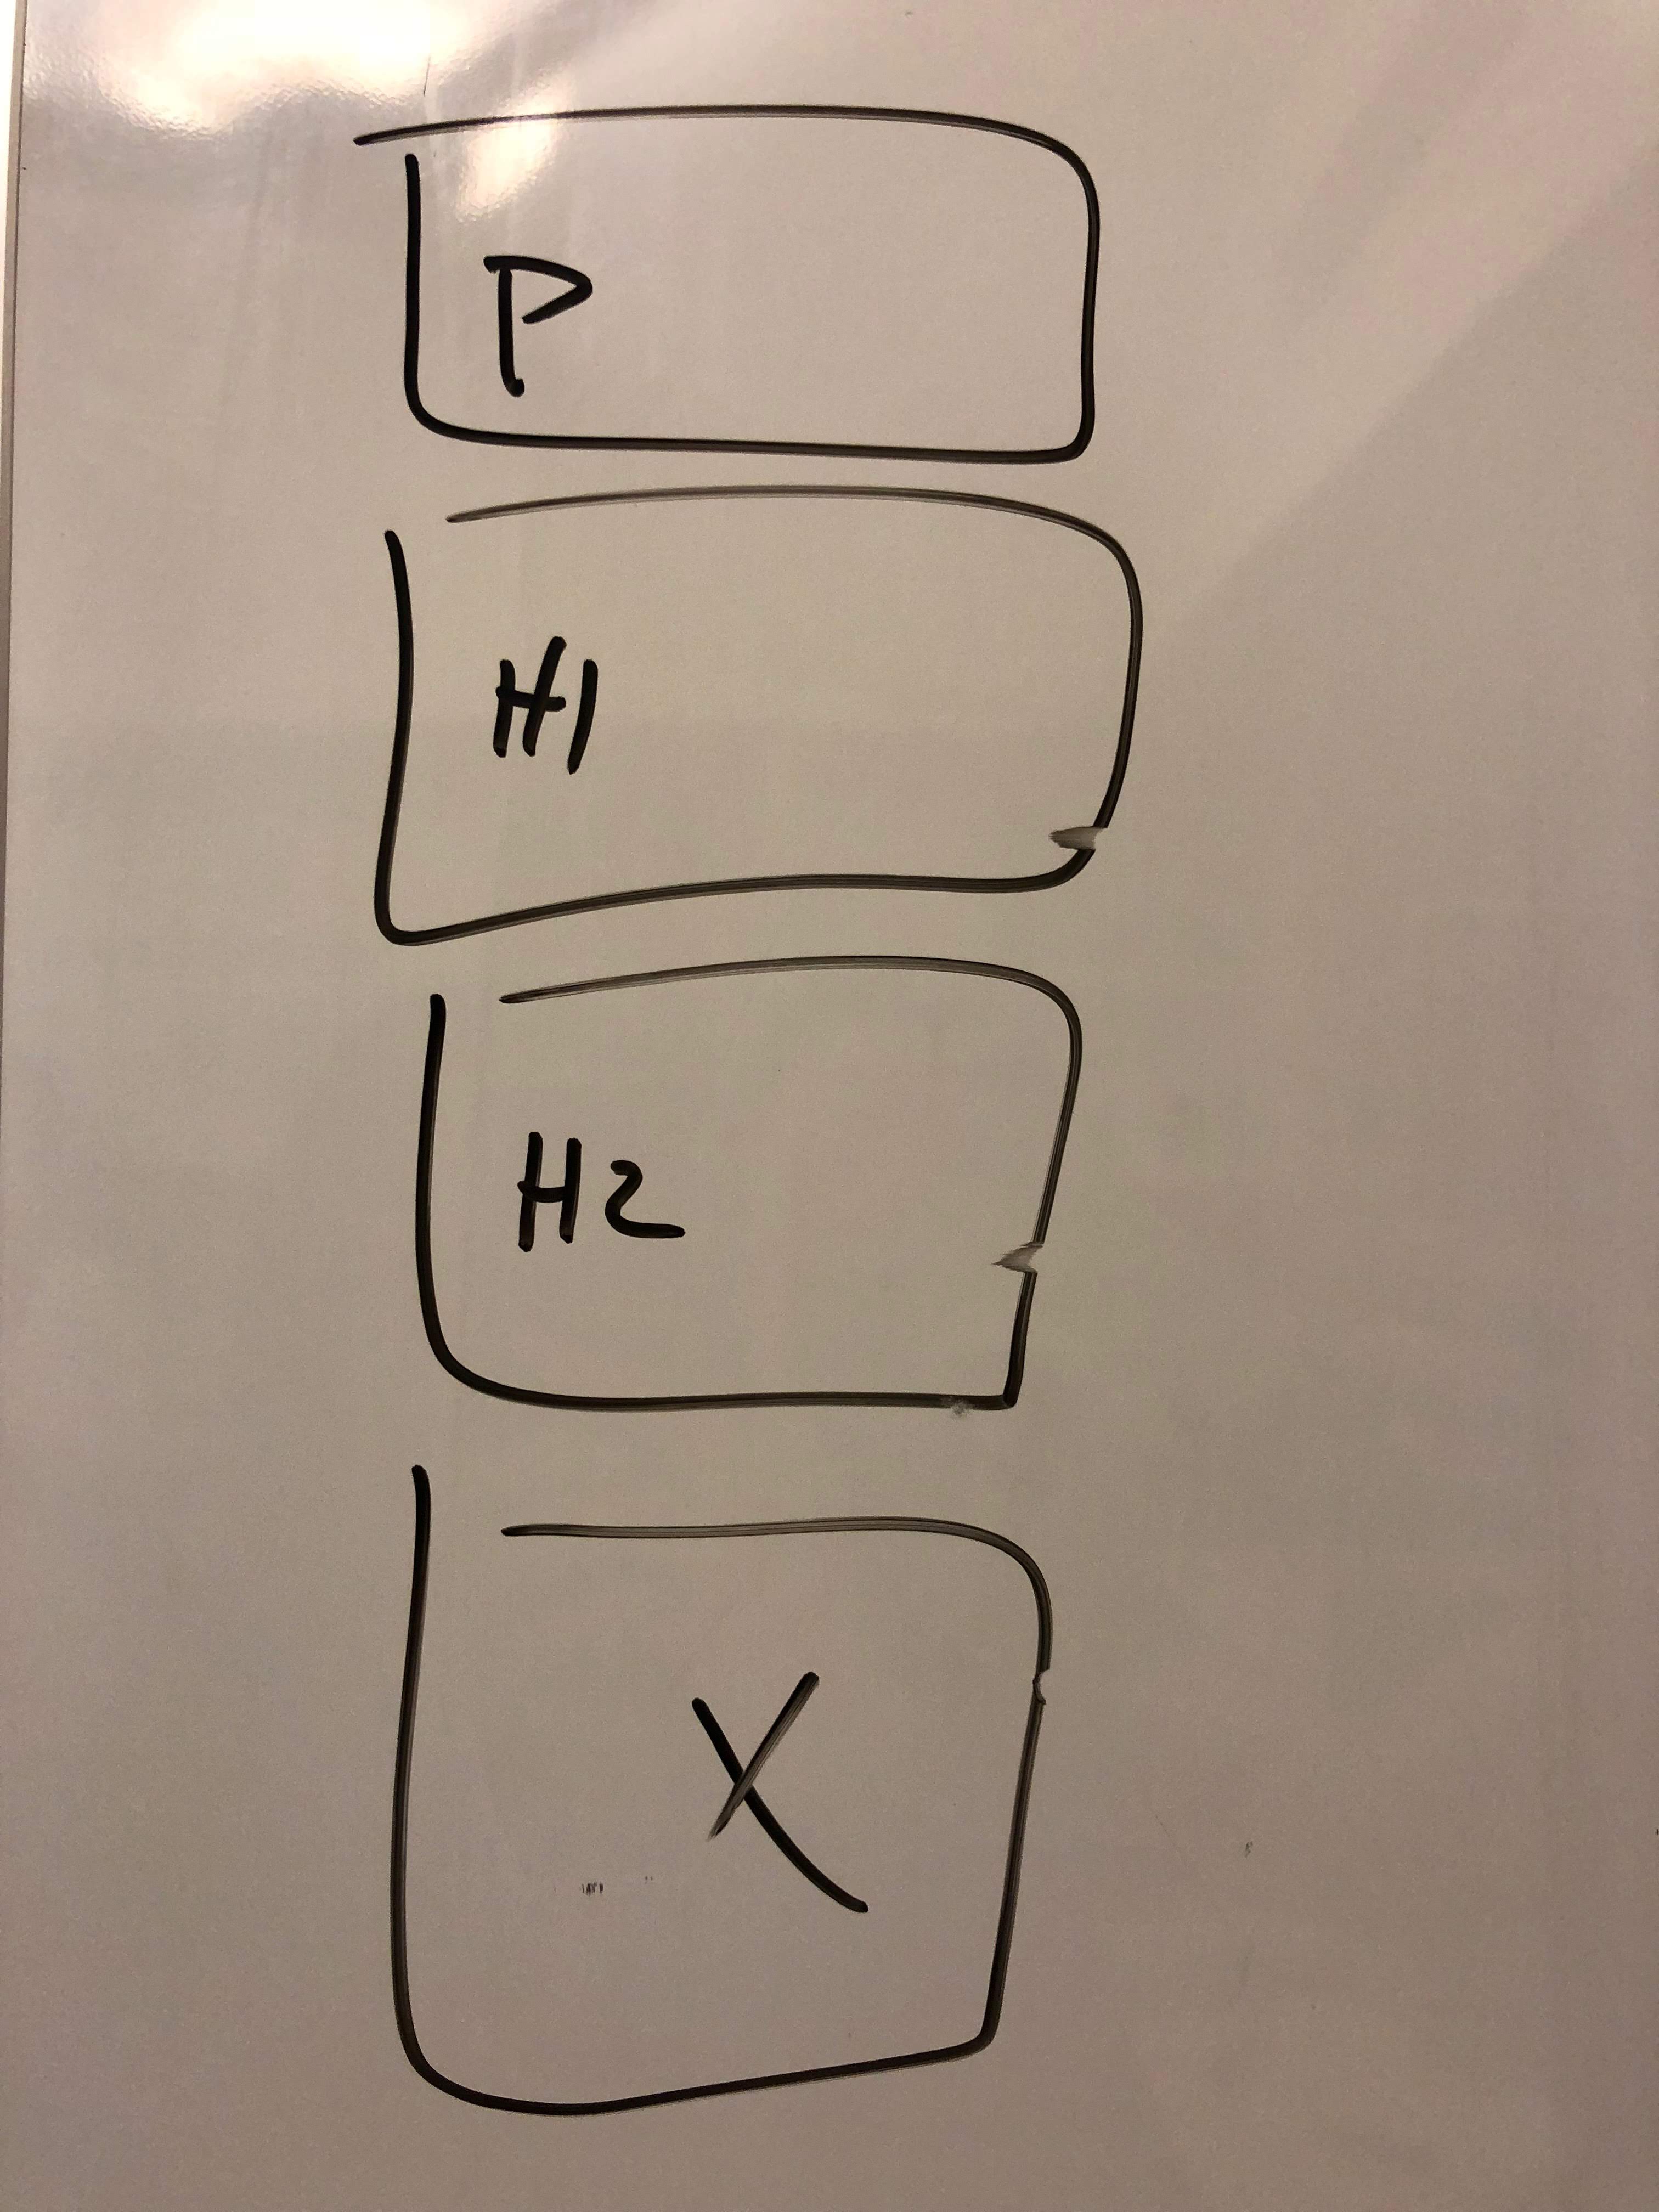 P
H1
H2
X